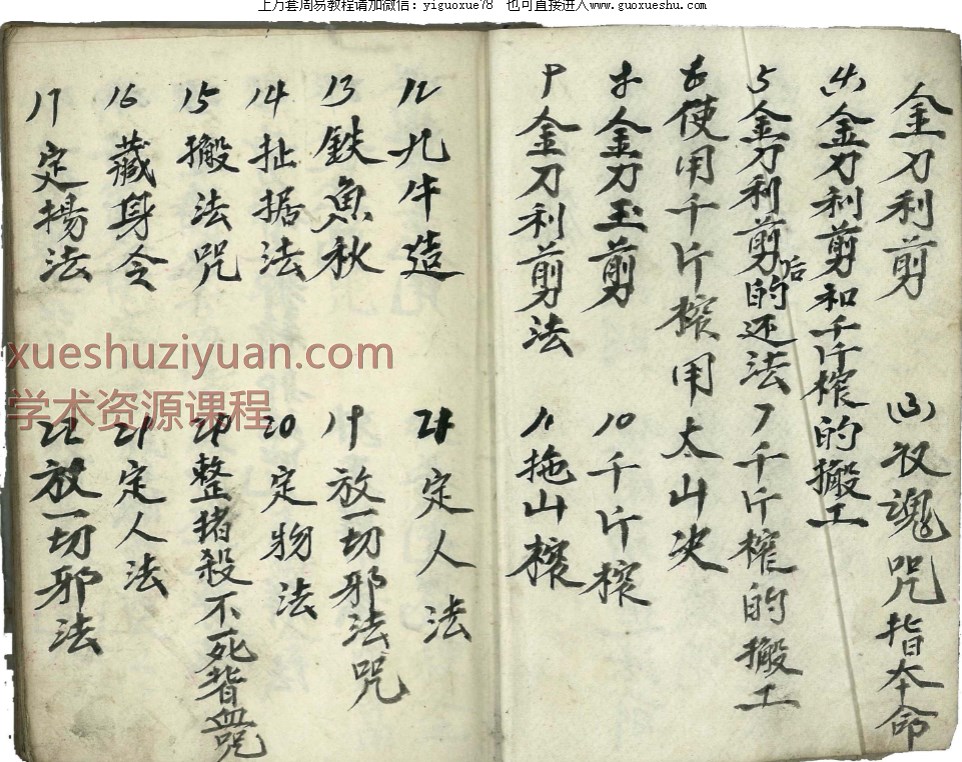 上万套周易教程请加微信：yiguoxue78 也可直接进入www.guoxueshu.com
金刀利剪
(3)收魂咒指本命
(4)金刀利剪和千斤榨的搬工
5金刀利剪后的还法
7千斤榨的搬工
6使用千斤榨用太山决
8金刀玉剪
10千斤榨
9金刀利剪法
11拖山榨
12九牛造
21定人法
13鉄魚秋
19放一切邪法咒
14扯据法
20定物法
15搬法咒
整猪殺不死背血咒
16藏身令
21定人法
17定揚法
22放一切邪法
xueshuziyuan.com
学术资源课程